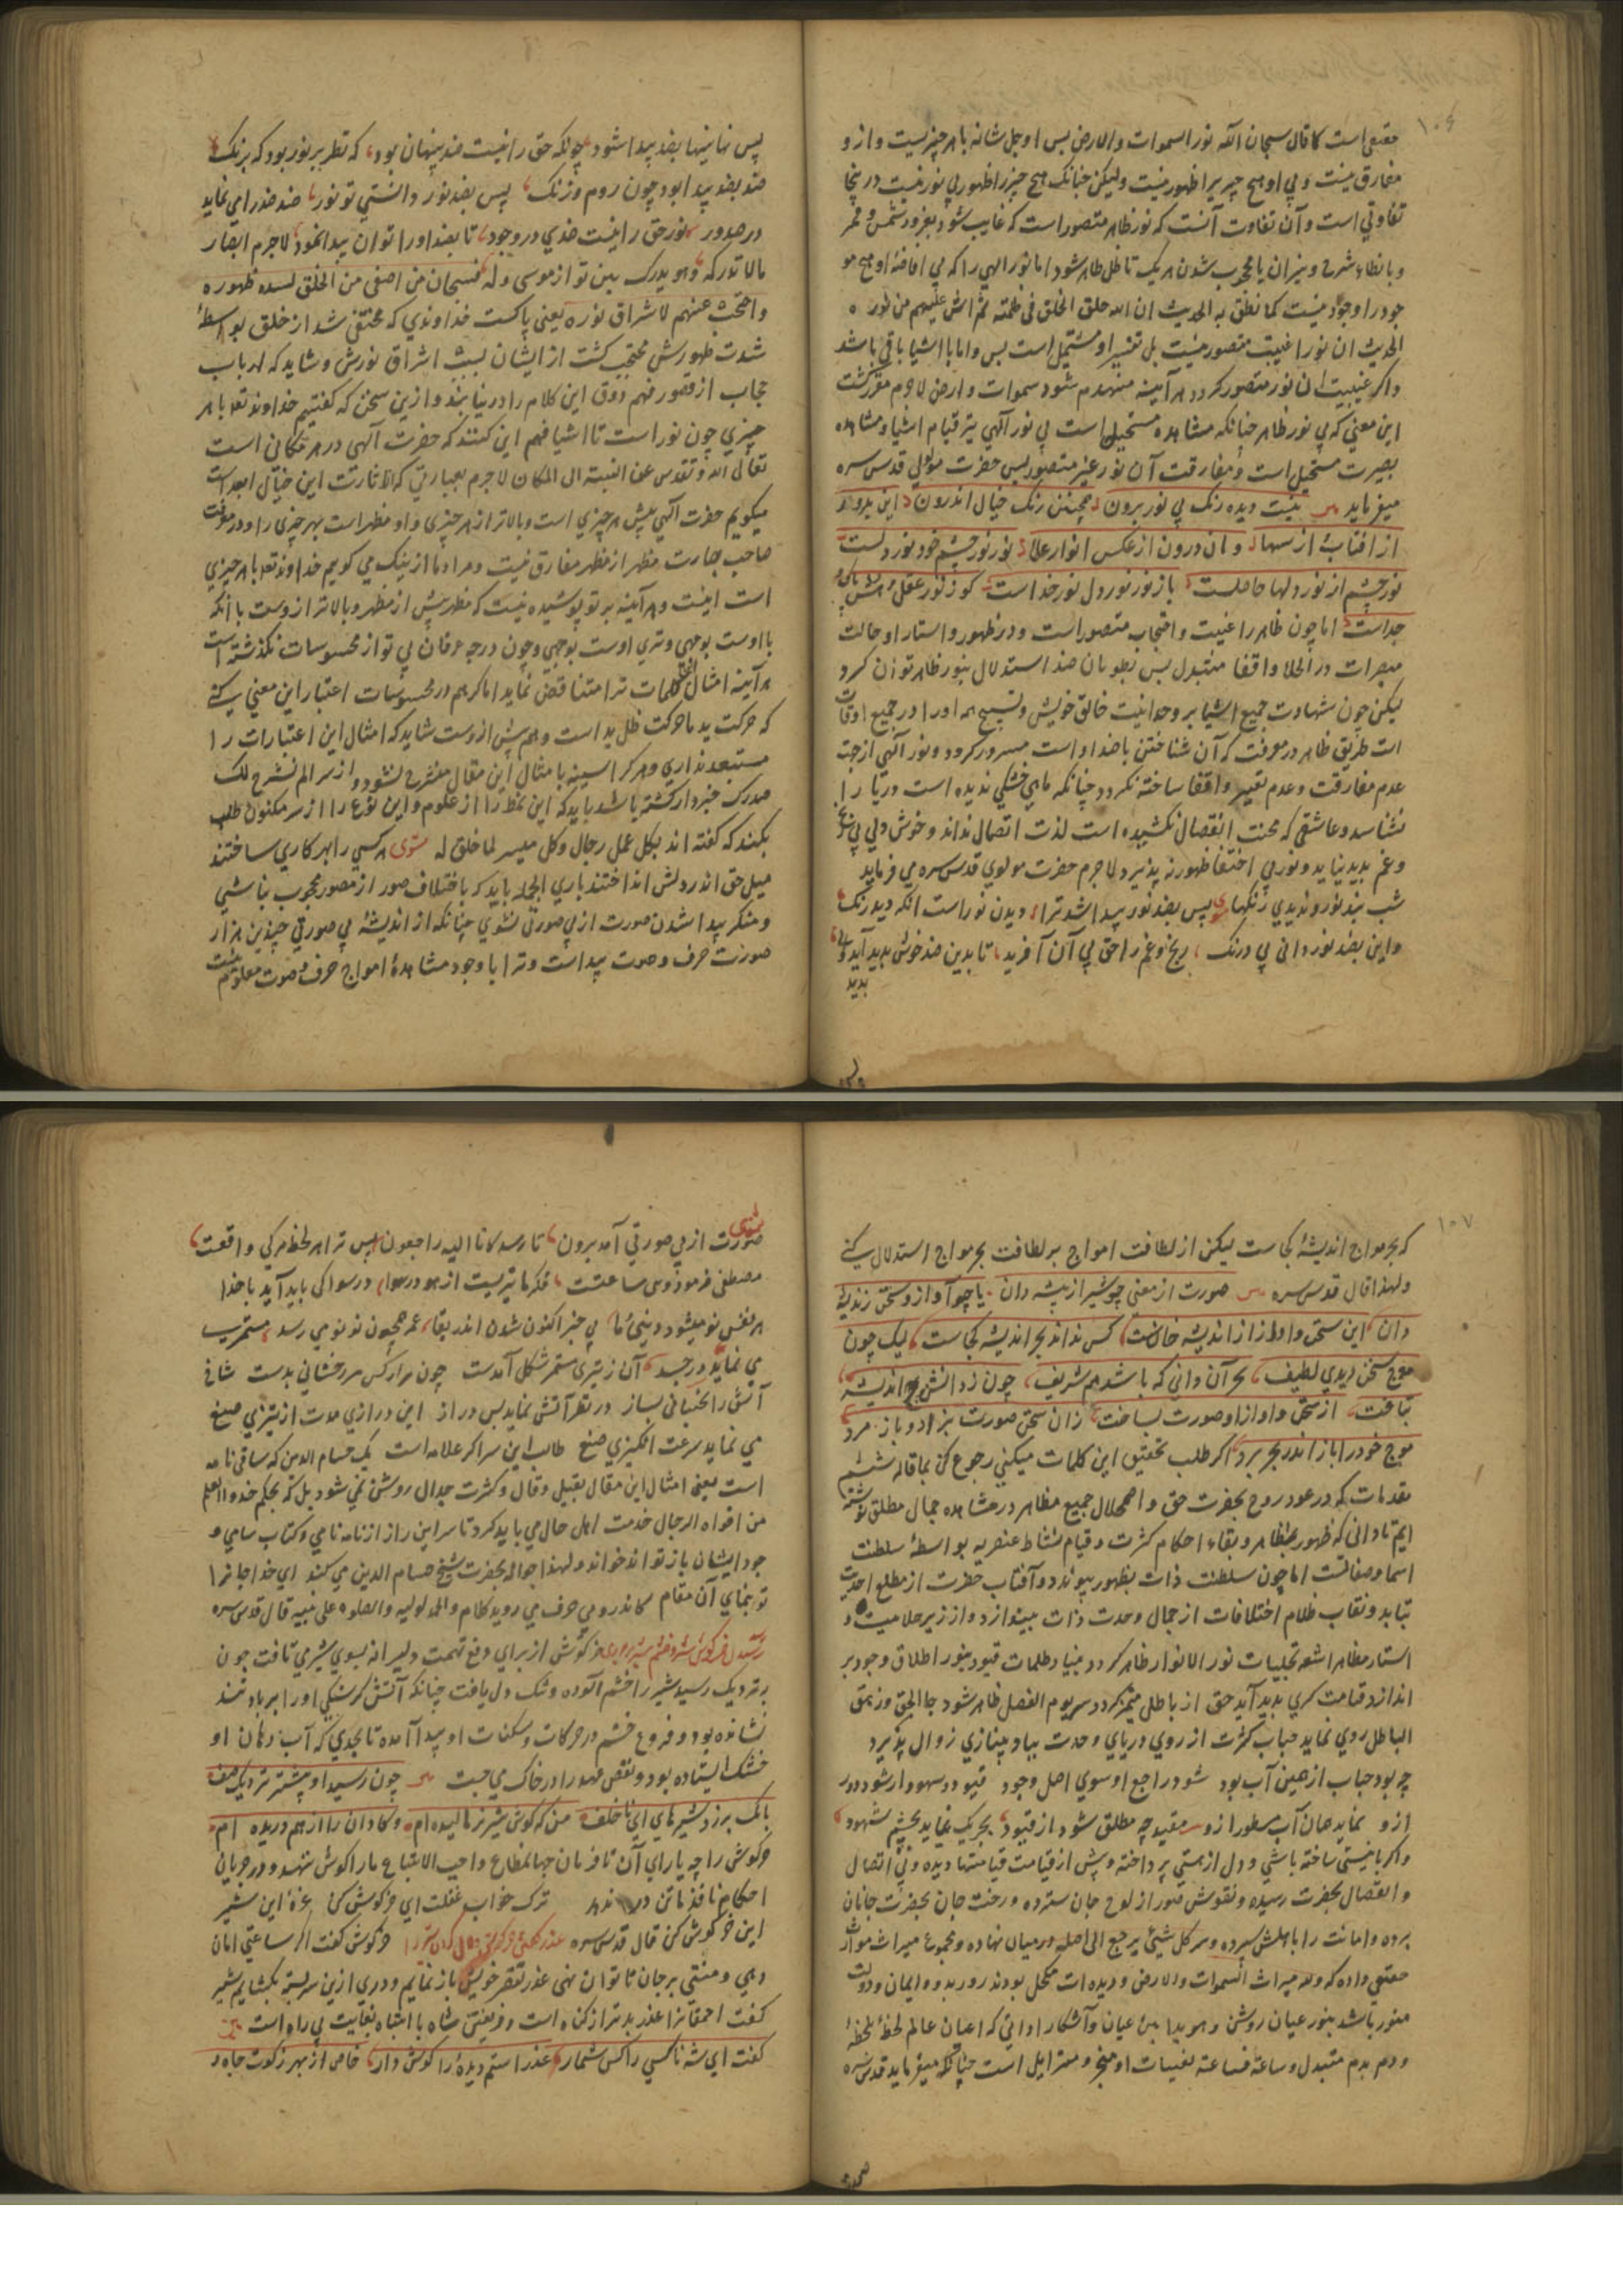 ۱۰۶
مقتضی است کما قال سبحان الله نور السموات والارض پس او جل شانه با هر چیزیست و از و
مفارق نیست و بی او هیچ چیز را ظهور نیست ولیکن چنانک هیچ چیز را ظهور بی نور نیست در نیجا
تفاوتی است و آن تفاوت آنست که نور ظاهر متصور است که غایب شود بغروب شمس و قمر
و بانطفاء شرح و نیران یا محجوب شدن هر یک تا ظل ظاهر شود اما نور الهی را که بی افاضهٔ او هیچ مو
جود را وجود نیست کما نطق به الحدیث ان الله خلق الخلق فی ظلمة ثم رش علیهم من نوره
الحدیث ان نور را غیبت متصور نیست بل تغییر او مستحیل است پس و اما با اشیا باقی باشد
و اکر غیبت ان نور متصور کردد هر آینه منهدم شود سموات و ارض لاجرم مقرر کشت
این معنی که بی نور ظاهر چنانکه مشاهده مستحیل است بی نور آلهی نیز قیام اشیا و مشاهده
بصیرت مستحیل است و مفارقت آن نور غیر متصور پس حضرت مولوی قدس سره
میفرماید نیست دیده رنک بی نور برون همچنین رنک خیال اندرون این برون
از افتاب و از سها و ان درون از عکس انوار علا نور نور چشم خود نور دلست
نور چشم از نور دلها حاصلست باز نور نور دل نور خداست کو ز نور عقل و حس پاک و
جداست اما چون ظاهر را غیبت و احتجاب متصور است و در ظهور و استتار او حالت
مبصرات در انجلا و اختفا متبدل پس بطریان ضد استدلال بنور ظاهر توان کرد
لیکن چون شهادت جمیع اشیا بر وحدانیت خالق خویش و تسبیح همه او را در جمیع اوقات
است طریق ظاهر در معرفت که آن شناختن باضداد است مسدود کردد و نور آلهی از جهت
عدم مفارقت و عدم تغییر و اختفا شناخته نکردد چنانکه ماهی خشکی ندیده است دریا را
نشناسد و عاشقی که محنت انفصال نکشیده است لذت اتصال نداند و خوش دلی بی رنج
و غم پدید نیاید و نور بی اختفا ظهور نپذیرد لاجرم حضرت مولوی قدس سره می فرماید
شب نبد نور و ندیدی رنکها پس بضد نور پیدا شد ترا دیدن نور است انکه دید رنک
و این بضد نور دانی بی درنک رنج و غم را حق پی آن آفرید تا بدین ضد خوش دلی آید
پدید
پس نهانیها بضد پیدا شود چونکه حق را نیست ضد پنهان بود که نظر بر نور بود که برنک
ضد بضد پیدا بود چون روم و زنک پس بضد نور دانستی تو نور ضد ضد را می نماید
در صدور نور حق را نیست ضدی در وجود تا بضد او را توان پیدا نمود لاجرم ابصار
ما لا تدرکه و هو یدرک بین تو از موسی و که فسبحان من اختفی من الخلق لشدة ظهوره
و احتجب عنهم لاشراق نوره یعنی پاکست خداوندی که مختفی شد از خلق بواسطهٔ
شدت ظهورش محتجب کشت از ایشان بسبب اشراق نورش و شاید که ارباب
حجاب از قصور فهم ذوق این کلام را در نیابند و ازین سخن که کفتیم خداوند تعالی با هر
چیزی چون نور است تا اشیا فهم این کنند که حضرت آلهی در هر مکانی است
تعالی الله و تقدس عن النسبة الی المکان لاجرم بعبارتی که از اثارت این خیال ابعد است
میکویم حضرت آلهی پیش هر چیزی است و بالاتر از هر چیزی و او مظهر است بهر چیزی را و در معرفت
صاحب بصارت مظهر از مظهر مفارق نیست و مراد ما ازینک می کویم خداوند تعالی با هر چیزی
است اینست و هر آینه بر تو پوشیده نیست که مظهر پیش از مظهر و بالاتر ازوست با آنکه
با اوست بوجهی و بی اوست بوجهی و چون درجه عرفان بی تو از محسوسات نکذشته است
هر آینه امثال این کلمات ترا متناقض نماید اما کر هم در محسوسات اعتبار این معنی کنی
که حرکت ید ما حرکت ظل ید است و هم پیش ازوست شاید که امثال این اعتبارات را
مستبعد نداری و هر کرا سینه با مثال این مقال منشرح نشود و از سر الم نشرح لک
صدرک خبردار نکشته باشد باید که این نمط را از علوم و این نوع را از سر مکنون طلب
بکند که کفته اند لکل عمل رجال و کل میسر لما خلق له مثنوی هر کسی را بهر کاری ساختند
میل حق اندر دلش انداختند باری الجمله باید که باختلاف صور از مصور محجوب نباشی
و منکر پیدا شدن صورت از بی صورتی نشوی چنانکه از اندیشهٔ بی صورتی چندین هزار
صورت حرف و صوت پیداست و ترا با وجود مشاهدهٔ امواج حرف و صوت معلوم نیست
۱۰۷
که بحر مواج اندیشه کجاست لیکن از لطافت امواج بر لطافت بحر مواج استدلال کنی
ولهذا قال قدس سره صورت از معنی چو شیر از بیشه دان یا چو آواز و سخن ز اندیشه
دان این سخن و اواز از اندیشه خاست کس نداند بحر اندیشه کجاست لیک چون
موج سخن دیدی لطیف بحر آن دانی که باشد هم شریف چون ز دانش موج اندیشه
بتافت از سخن و اواز او صورت بساخت زان سخن صورت بزاد و باز مرد
موج خود را باز اندر بحر برد اکر طلب تحقیق این کلمات میکنی رجوع کن بما قاله ششم
مقدمات که در عود روح بحضرت حق و اضمحلال جمیع مظاهر در مشاهده جمال مطلق نوشته
ایم تا دانی که ظهور مظاهر و بقاء احکام کثرت و قیام نشاط عنصریه بواسطهٔ سلطنت
اسما و صفاتست اما چون سلطنت ذات بظهور پیوندد و آفتاب حضرت از مطلع احدیت
بتابد و نقاب ظلام اختلافات از جمال وحدت ذات بیندازد و از زیر جلابیب و
استار مظاهر اشعه تجلیات نور الانوار ظاهر کردد و بنیاد ظلمات قیود بنور اطلاق وجود بر
اندازد قیامت کبری پدید آید حق از باطل متمیز کردد سر یوم الفصل ظاهر شود جا الحق و زهق
الباطل روی نماید حباب کثرت از روی دریای وحدت بباد بی نیازی زوال پذیرد
چه بود حباب از همین آب بود شود راجع او سوی اصل وجود قیود در سهو وار شود دور
ازو نماید همان آب مسطور ازو مقید چه مطلق شود از قیود بحر یک نماید بچشم شهود
و اکر با نیستی ساخته باشی و دل از هستی پرداخته و پیش از قیامت قیامتها دیده و بی اتصال
و انفصال بحضرت رسیده و نقوش صور از لوح جان سترده و رخت جان بحضرت جانان
برده و امانت را باهلش سپرده و سر کل شیئ یرجع الی اصله در میان نهاده و مجموع میراث موارث
حقیقی داده که و لله میراث السموات والارض و دیده ات مکحل بود نور ربوده و ایمان و دولت
منور باشد بنور عیان روشن و هویدا ببین عیان و آشکارا دانی که اعیان عالم لحظهٔ بلحظهٔ
و دم بدم متبدل و ساعة فساعة تعینات او متغیر و متزایل است چنانکه میفرماید قدس سره
مثنوی
صورت از بی صورتی آمد برون تا رسد کانا الیه راجعون پس ترا هر لحظه مرکی و اقعت
مصطفی فرمود دنیی ساعتست فکر ما تیریست از هو در هوا در هوا کی پاید آید با خدا
هر نفس نو میشود دنیی و ما بی خبر از نو شدن اندر بقا عمر همچون نو نو می رسد مستمری
می نماید در جسد آن ز تیزی مستمر شکل آمدست چون شرر کس سر جنبانی بدست شاخ
آتش را بجنبانی بساز در نظر آتش نماید بس دراز این درازی مدت از تیزی صنع
می نماید سرعت انکیزی صنع طالب این سر اکر علامه است یک حسام الدین که سامی نامه
است یعنی امثال این مقال بقیل و قال و کثرت جدال روشن نمی شود بل که بحکم خذوا العلم
من افواه الرجال خدمت اهل حال می باید کرد تا سر این راز از نامه نامی و کتاب سامی و
جود ایشان باز تواند خواند ولهذا حواله بحضرت شیخ حسام الدین می کند ای خدا جانرا
تو بنمای آن مقام کاندرو بی حرف می روید کلام والحمد لولیه والصلوة علی نبیه قال قدس سره
رسیدن خرکوش بشیر و خشم شیر بر وی خرکوش از برای دفع تهمت دلیرانه بسوی شیر می تافت چون
بنزدیک رسید شیر را خشم آلوده و تنک دل یافت چنانکه آتش کرسنکی او را بر باد تند
نشانده بود و فروغ خشم در حرکات و سکنات او پیدا آمده تا بحدی که آب دهان او
خشک ایستاده بود و نقض عهد را در خاک می جست چون رسید او پیشتر نزدیک صف
بانک برزد شیر های ای ناخلف من که کوش شیر نر مالیده ام و کاوان را از هم دریده ام
خرکوش را چه یارای آن تا فرمان جهانمطاع واجب الاتباع ما را کوش ننهد و در جریان
احکام نافذ ما تن در ندهد ترک خواب غفلت ای خرکوش کن غرهٔ این شیر
این خرکوش کن قال قدس سره عذر کفتن خرکوش خرکوش کفت اکر ساعتی امان
دهی و منتی بر جان ناتوان نهی عذر تقصیر خویش باز نمایم و دری ازین سر بسته بکشایم شیر
کفت احمقانرا عذر بدتر از کناه است و فریفتن شاه با انتباه بغایت بی راه است
کفت ای شه ناکسی را کس شمار عذر استم دیدهٔ را کوش دار خاص از بهر زکوت جاه خود